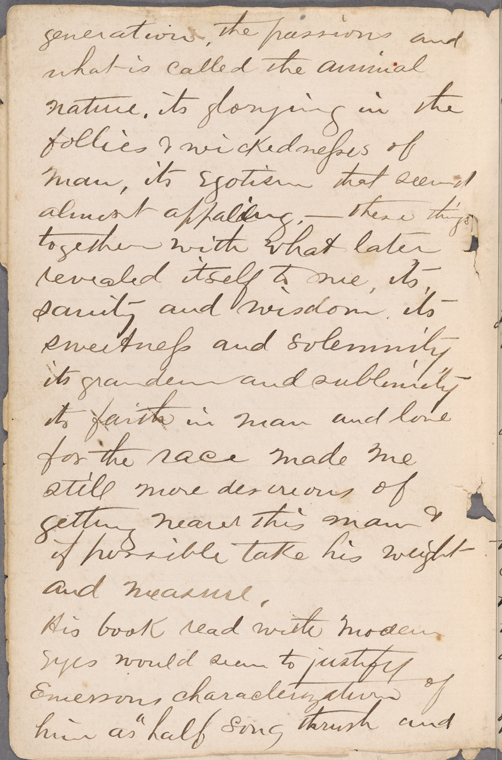 generation, the passions and
what is called the animal
nature, its glorying in the
follies & wickednesses of
man, its egotism that seemed
almost appaling, — these things
together with what later
revealed itself to me, its
sanity and wisdom, its
sweetness and solemnity
its grandeur and sublimity
its faith in man and love
for the race made me
still more desireous of
getting nearer this man &
if possible take his weight
and measure.
His book read with modern
eyes would seem to justify
Emersons characterization of
him as "half song thrush and